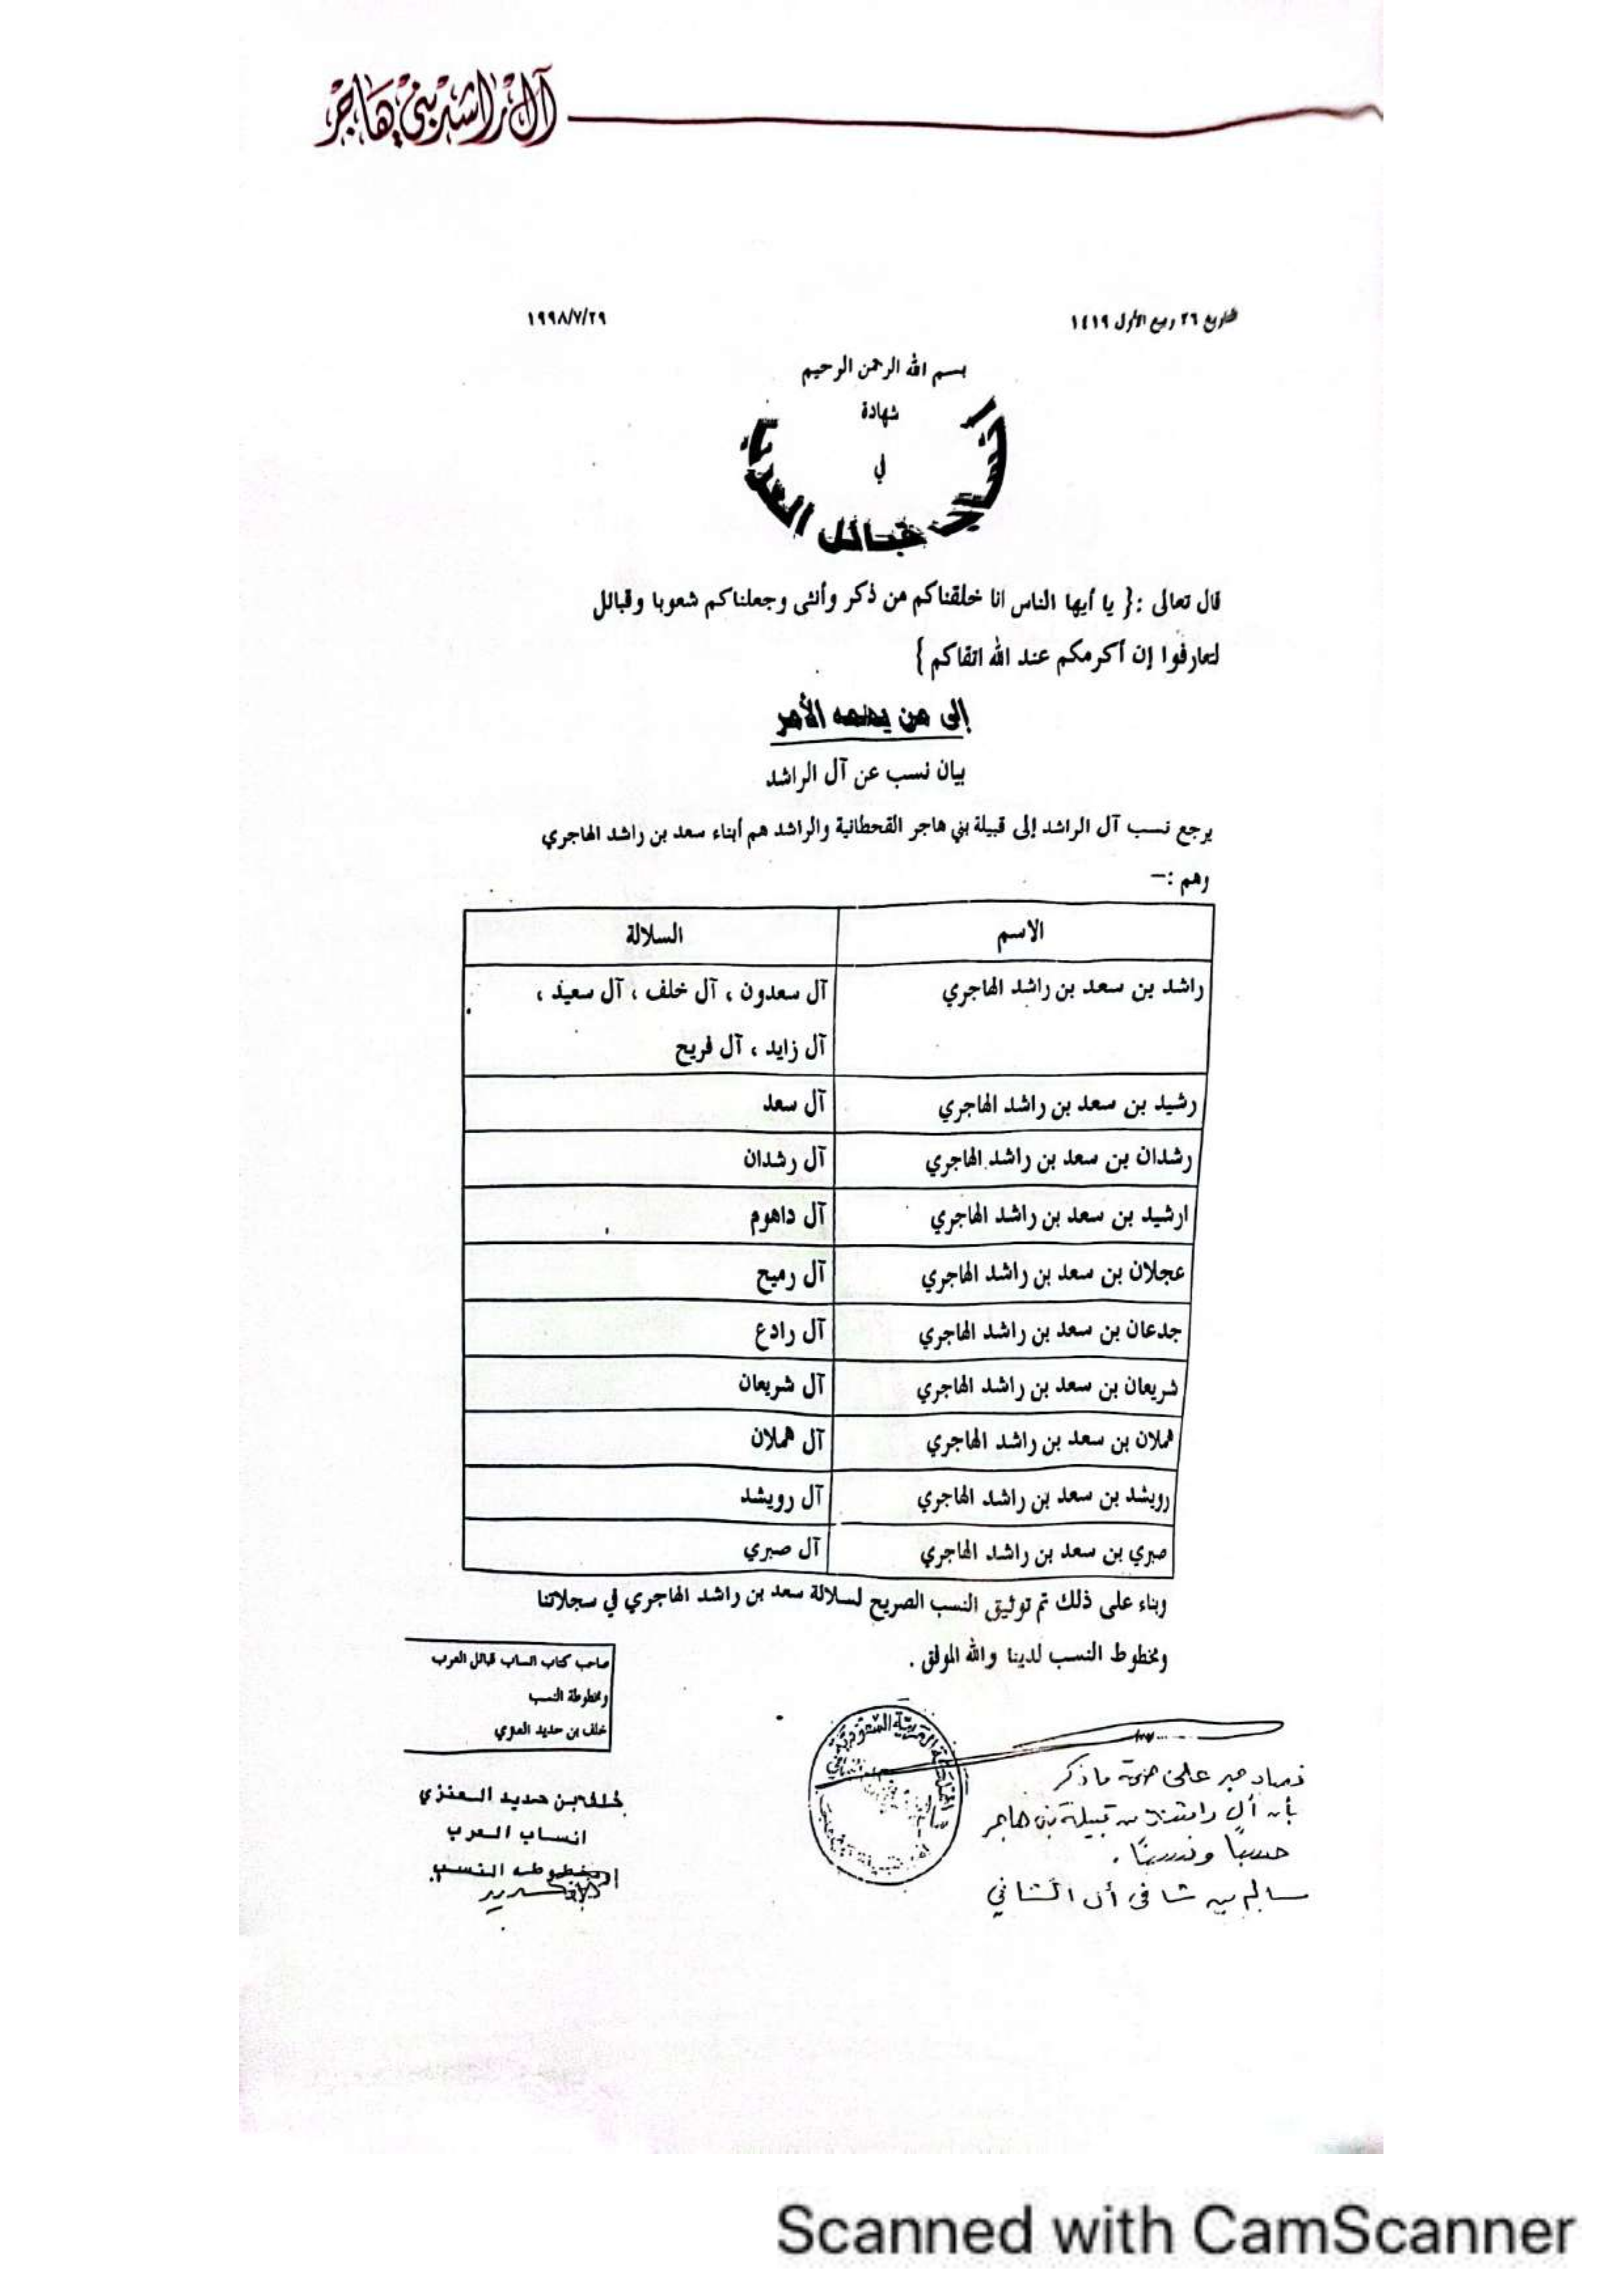 آل راشد بني هاجر
التاريخ ٢٦ ربيع الأول ١٤١٩
١٩٩٨/٧/٢٩
بسم الله الرحمن الرحيم
شهادة
في
انساب قبائل العرب
قال تعالى :{ يا أيها الناس انا خلقناكم من ذكر وأنثى وجعلناكم شعوبا وقبائل
لتعارفوا إن أكرمكم عند الله اتقاكم }
إلى من يهمه الأمر
بيان نسب عن آل الراشد
يرجع نسب آل الراشد إلى قبيلة بني هاجر القحطانية والراشد هم أبناء سعد بن راشد الهاجري
وهم :–
الاسم السلالة
راشد بن سعد بن راشد الهاجري آل سعدون ، آل خلف ، آل سعيد ،
آل زايد ، آل فريح
رشيد بن سعد بن راشد الهاجري آل سعد
رشدان بن سعد بن راشد الهاجري آل رشدان
ارشيد بن سعد بن راشد الهاجري آل داهوم
عجلان بن سعد بن راشد الهاجري آل رميح
جدعان بن سعد بن راشد الهاجري آل رادع
شريعان بن سعد بن راشد الهاجري آل شريعان
هملان بن سعد بن راشد الهاجري آل هملان
رويشد بن سعد بن راشد الهاجري آل رويشد
صبري بن سعد بن راشد الهاجري آل صبري
وبناء على ذلك تم توثيق النسب الصريح لسلالة سعد بن راشد الهاجري في سجلاتنا
ومخطوط النسب لدينا والله الموفق .
صاحب كتاب انساب قبائل العرب
ومخطوطة النسب
خلف بن حديد العنزي
المملكة العربية السعودية
على صحة ما ذكر
بأن آل راشد من قبيلة بني هاجر
حسبًا ونسبًا .
سالم بن شافي آل الشافي
خلف بن حديد العنزي
انساب العرب
مخطوطه النسب
Scanned with CamScanner